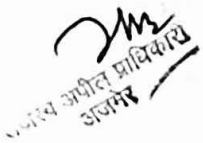 अपील प्राधिकारी
अजमेर